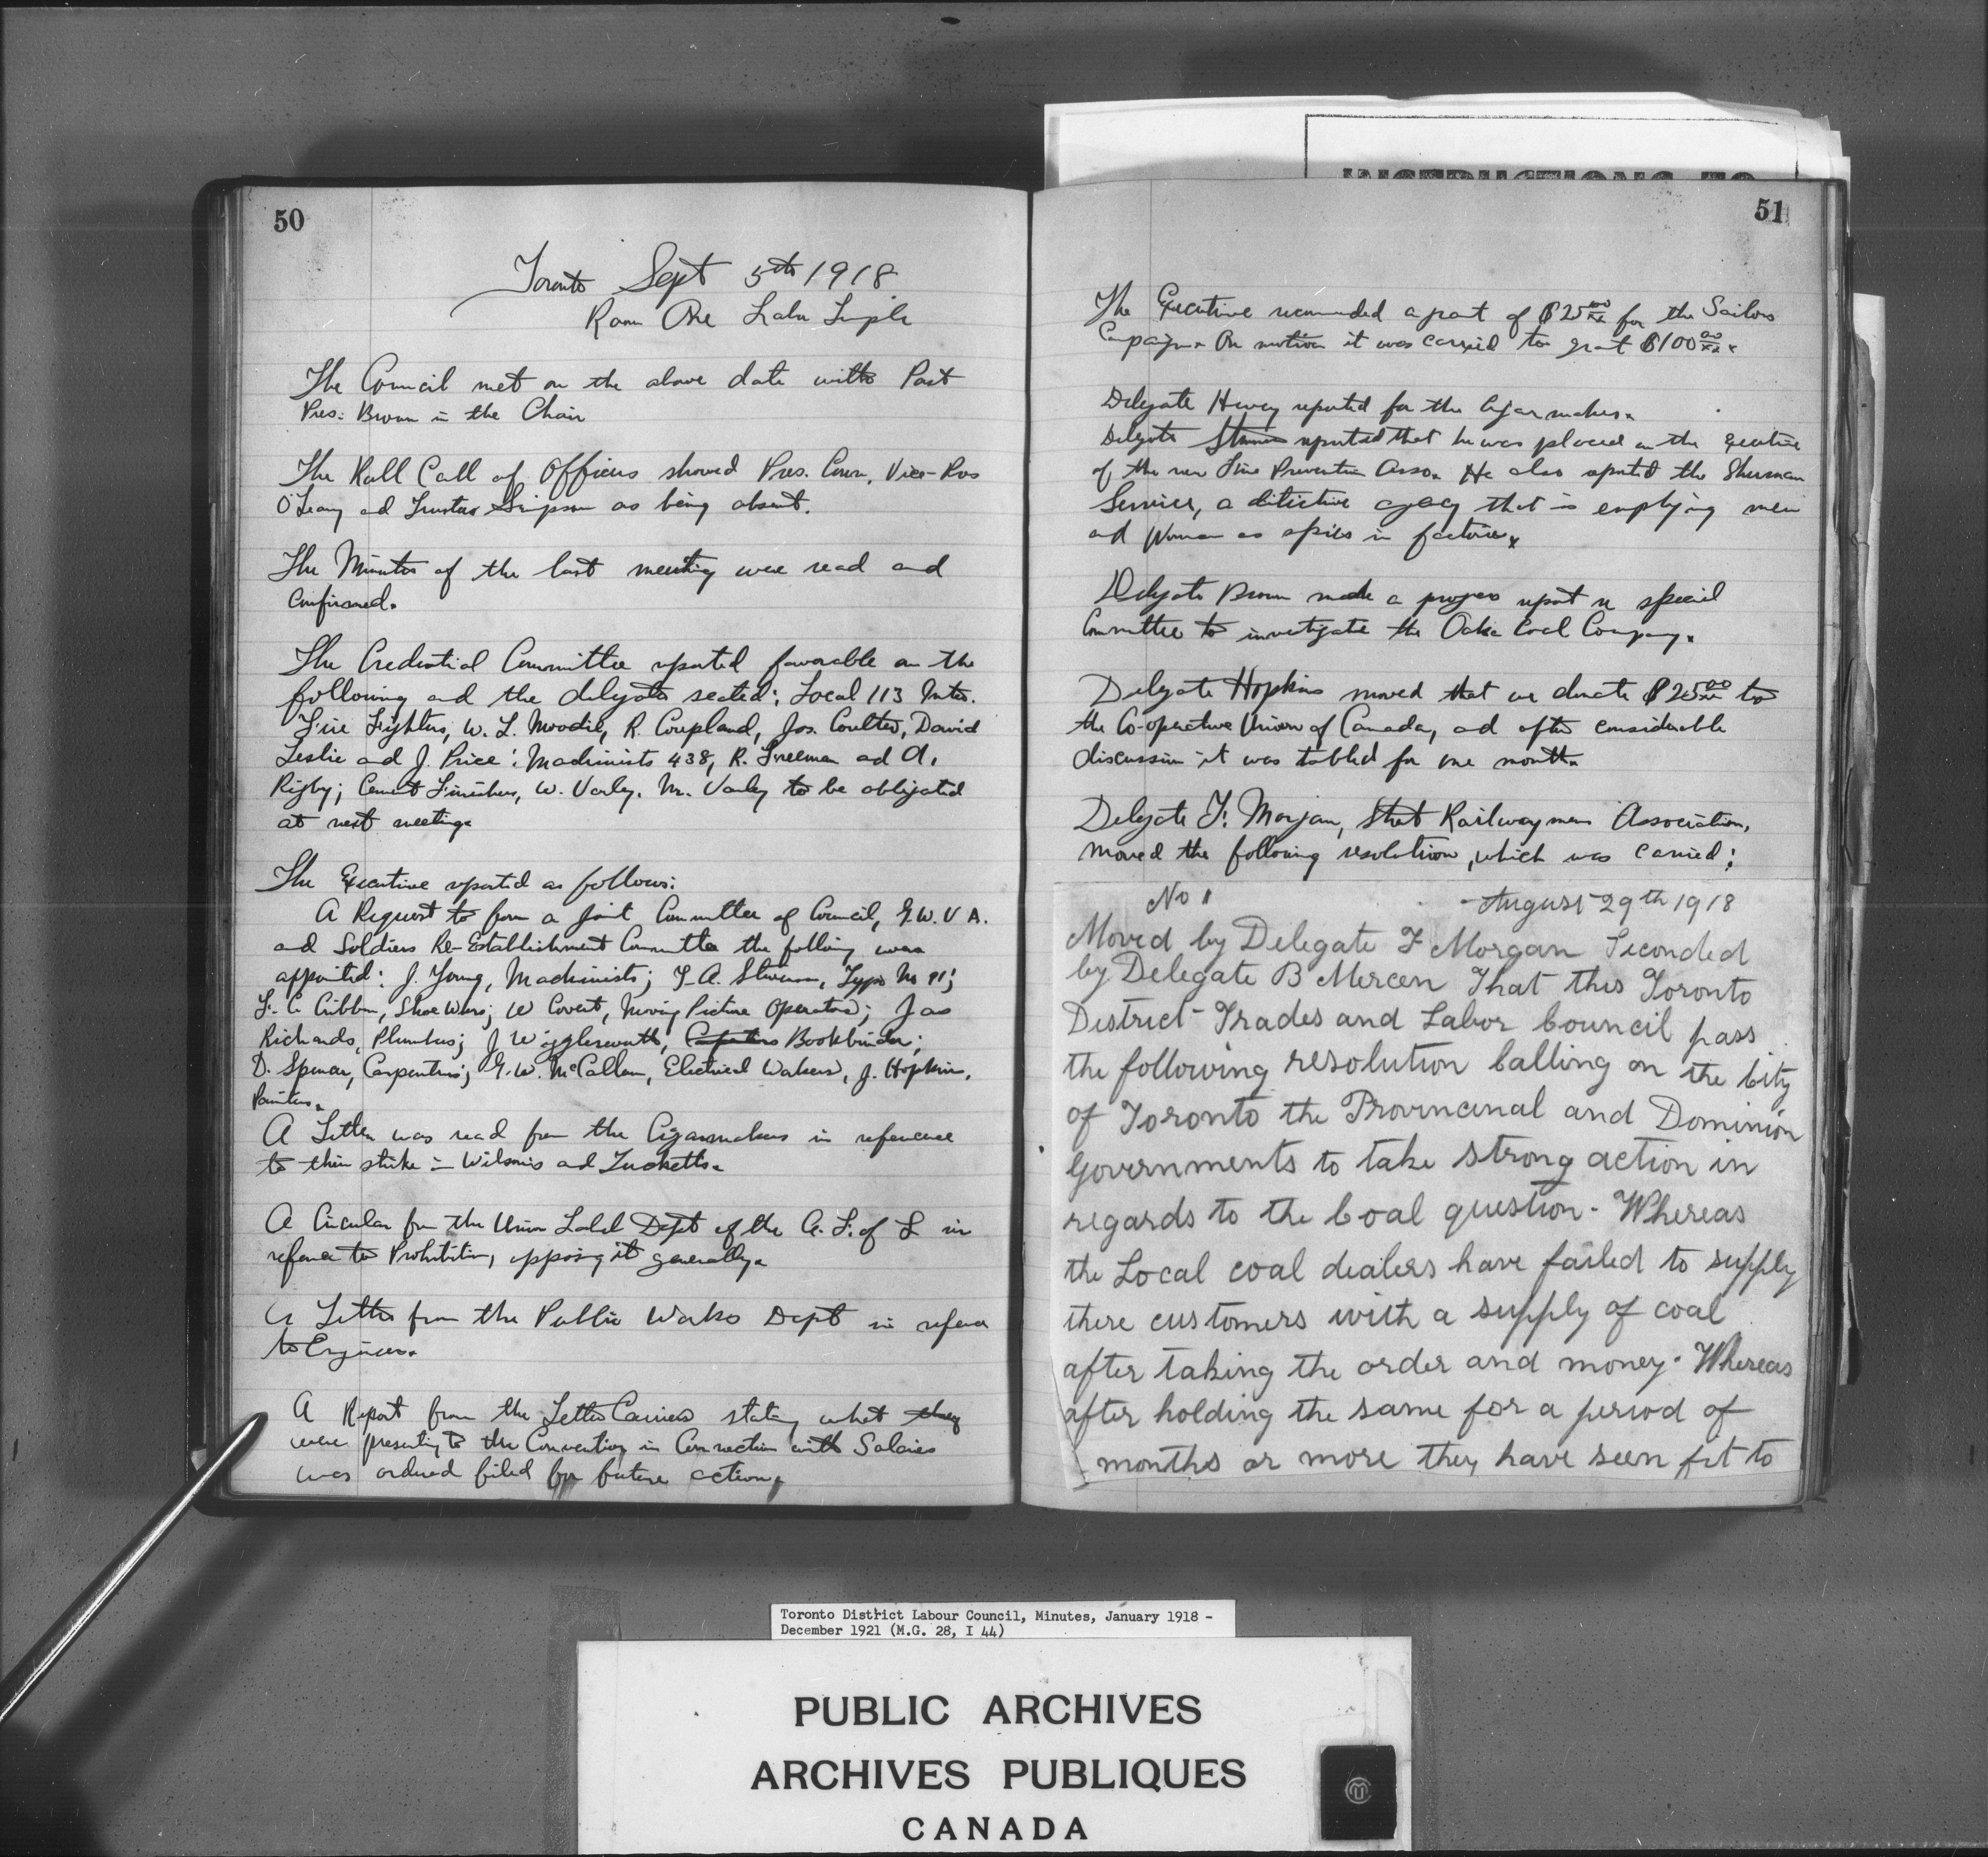 50
Toronto Sept 5th 1918
Room One Labor Temple
The Council met on the above date with Past
Pres. Brown in the Chair
The Roll Call of Officers showed Pres. Conn, Vice-Pres
O'Leary and Trustee Simpson as being absent.
The Minutes of the last meeting were read and
Confirmed.
The Credential Committee reported favorable on the
following and the delegates seated: Local 113 Inter.
Fire Fighters, W. L. Moodie, R. Coupland, Jos. Coulter, David
Leslie and J. Price; Machinists 438, R. Freeman and A.
Rigby; Cement Finishers, W. Varley. Mr. Varley to be obligated
at next meeting.
The Executive reported as follows:
A Request to form a Joint Committee of Council, G.W.V.A.
and Soldiers Re-Establishment Committee the following was
appointed: J. Young, Machinists; T. A. Stevenson, Typo No 91;
F. C. Cribben, Shoe Wkrs; W Covert, Moving Picture Operators; Jas
Richards, Plumbers; J Wigglesworth, Carpenters Bookbinder;
D. Spencer, Carpenters; G. W. McCallum, Electrical Workers, J. Hopkins,
Painters.
A Letter was read from the Cigarmakers in reference
to their strike in Wilsons and Tucketts.
A Circular from the Union Label Dept of the A. F. of L in
reference to Prohibition, opposing it generally.
A Letter from the Public Works Dept in reference
to Engineers.
A Report from the Letter Carriers stating what they
were presenting to the Convention in Connection with Salaries
was ordered filed for future action.
51
INSTRUCTIONS TO
The Executive recommended a grant of $25 00/xx for the Sailors
Campaign. On motion it was carried to grant $100 00/xx.
Delegate Hevey reported for the Cigarmakers.
Delegate reported that he was placed on the Executive
of the new Fire Prevention Asso. He also reported the Sherman
Service, a detective agency that is employing men
and Women as spies in factories.
Delegate Brown made a progress report re special
Committee to investigate the Oake Coal Company.
Delegate Hopkins moved that we donate $25 00/xx to
the Co-operative Union of Canada, and after considerable
discussion it was tabled for one month.
Delegate F. Morgan, Street Railwaymens Association,
moved the following resolution, which was carried:
No 1 August 29th 1918
Moved by Delegate F Morgan Seconded
by Delegate B Mercen That this Toronto
District Trades and Labor Council pass
the following resolution Calling on the City
of Toronto the Provincinal and Dominion
Governments to take strong action in
regards to the Coal question. Whereas
the Local coal dealers have failed to supply
there customers with a supply of coal
after taking the order and money. Whereas
after holding the same for a period of
months or more they have seen fit to
Toronto District Labour Council, Minutes, January 1918 -
December 1921 (M.G. 28, I 44)
PUBLIC ARCHIVES
ARCHIVES PUBLIQUES
CANADA